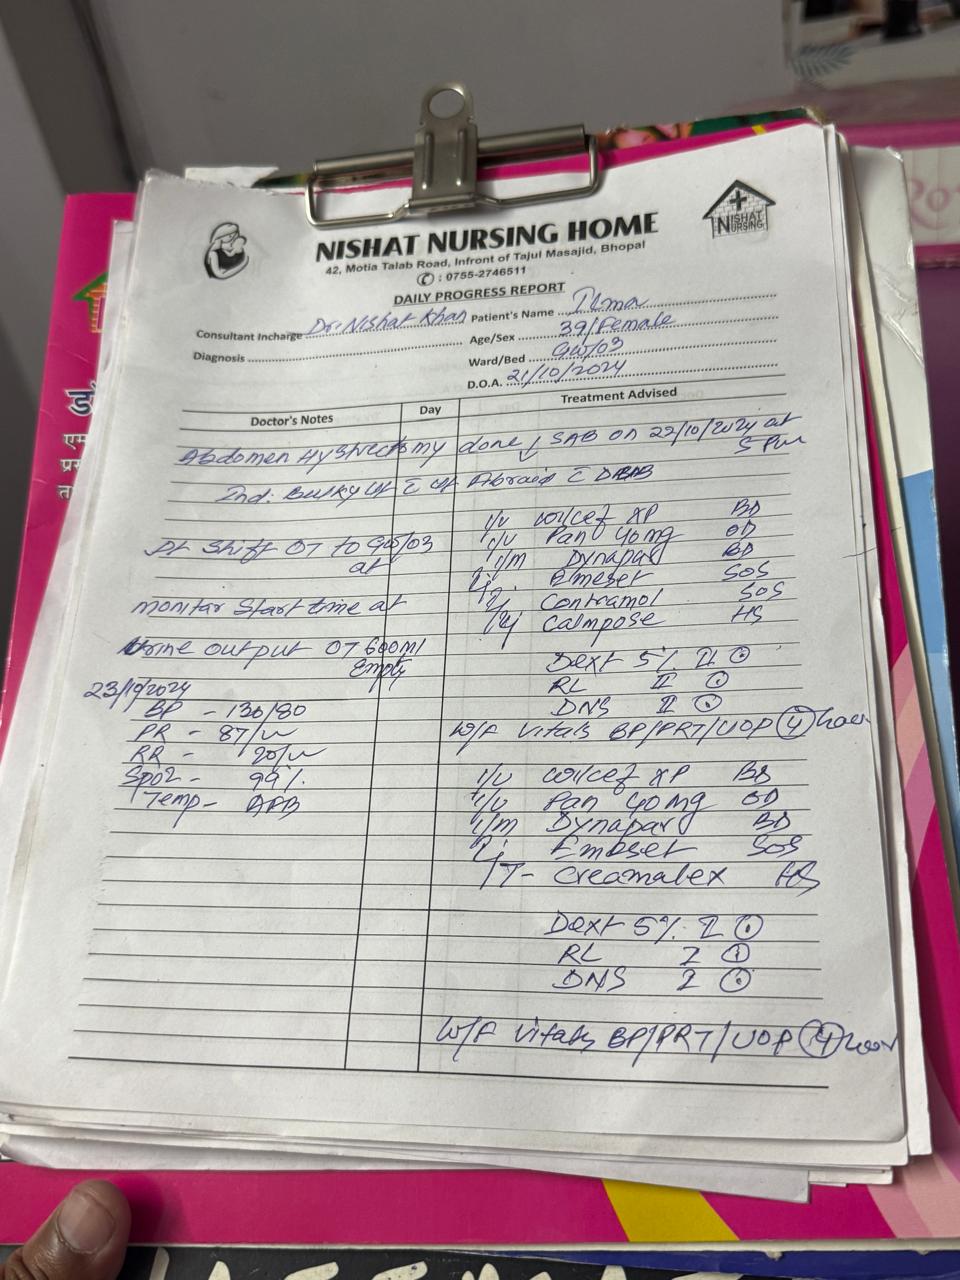 NISHAT NURSING HOME
NISHAT
NURSING
42, Motia Talab Road, Infront of Tajul Masajid, Bhopal
: 0755-2746511
DAILY PROGRESS REPORT
Consultant Incharge Dr. Nishat Khan Patient's Name Ilma
Diagnosis Age/Sex 39/Female
Ward/Bed GW/03
D.O.A. 21/10/2024
Doctor's Notes Day Treatment Advised
Abdomen Hystrectomy done SAB on 22/10/2024 at
5 Pm
Ind: Bulky Ut c Ut c
I/V XP BD
Pt Shift OT to GW/03 I/V Pan 40mg OD
at I/M Dynapar BD
Emeset SOS
monitar Start time at Contramol SOS
Calmpose HS
Urine output OT 600ml Dext 5% II
Empty RL II
23/10/2024 DNS II
BP - 130/80 W/F Vitals BP/PRT/UOP 4 hour
PR - 87/
RR - 20/
Spo2 - 99% I/V XP BD
Temp - I/V Pan 40mg OD
I/M Dynapar BD
Emeset SOS
T- Creamalex HS
Dext 5% I
RL I
DNS I
W/F Vitals BP/PRT/UOP 4 hour